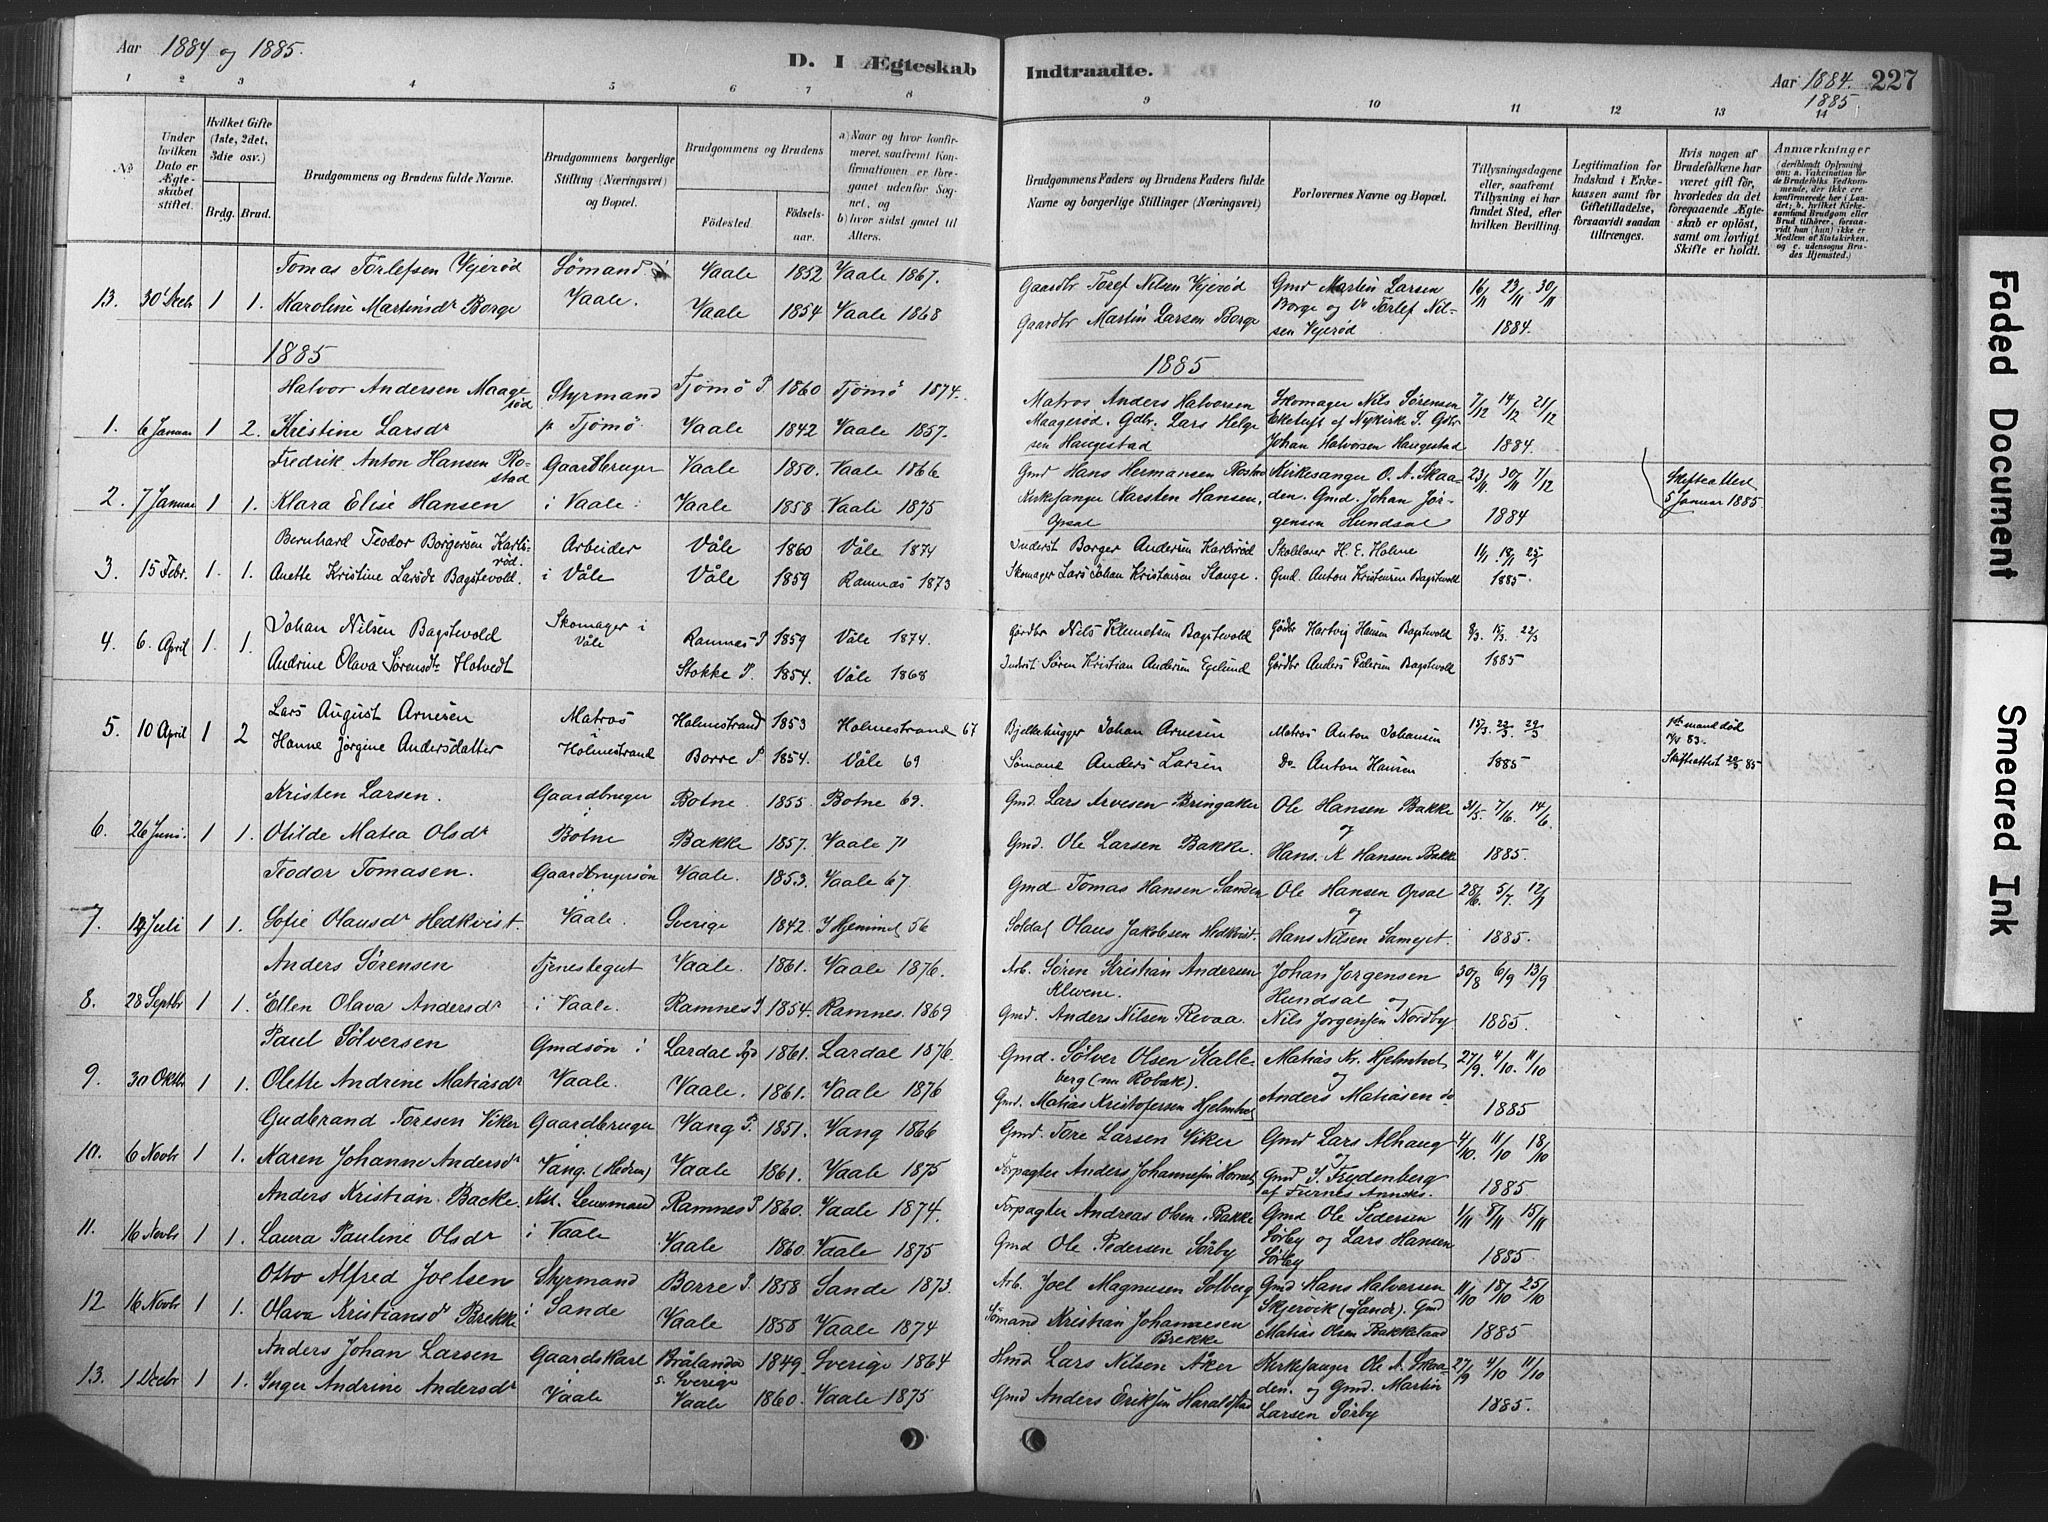 Aar 1884 og 1885.
D. I Ægteskab Indtraadte.
Aar 1884. 227
1885
1 2 3 4 5 6 7 8 9 10 11 12 13 14
№
Under hvilken Dato er Ægteskabet stiftet.
Hvilket Gifte (1ste, 2det, 3die osv.)
Brdg. Brud.
Brudgommens og Brudens fulde Navne.
Brudgommens borgerlige Stilling (Næringsvei) og Bopæl.
Brudgommens og Brudens
Fødested. Fødselsaar.
a) Naar og hvor konfirmeret, saafremt Konfirmationen er foregaaet udenfor Sognet, og
b) hvor sidst gaaet til Alters.
Brudgommens Faders og Brudens Faders fulde Navne og borgerlige Stillinger (Næringsvei)
Forlovernes Navne og Bopæl.
Tillysningsdagene eller, saafremt Tillysning ei har fundet Sted, efter hvilken Bevilling.
Legitimation for Indskud i Enkekassen samt for Giftetilladelse, forsaavidt saadan tiltrænges.
Hvis nogen af Brudefolkene har været gift før, hvorledes da det foregaaende Ægteskab er opløst, samt om lovligt Skifte er holdt.
Anmærkninger (deriblandt Oplysning om: a. Vakcination for de Brudefolks Vedkommende, der ikke ere konfirmerede her i Landet; b. hvilket Kirkesamfund Brudgom eller Brud tilhører, forsaavidt han (hun) ikke er Medlem af Statskirken, og c. udensogns Brudes Hjemsted.)
Tomas Torlefsen Vejerød Sømand i Vaale 1852 Vaale 1867. Gaardbr Toref Nilsen Vejerød Gmd Martin Larsen 16/11 23/11 30/11
13. 30' Decbr 1 1. Karoline Martinsdr Borge Vaale. Vaale 1854 Vaale 1868 Gaardbr Martin Larsen Borge Borge og Torlef Nilsen Vejerød 1884.
1885 1885
Halvor Andersen Maagerød Styrmand Tjømø P. 1860 Tjømø 1874. Matros Anders Halvorsen Skomager Nils Sørensen 7/12 14/12 21/12
1. 6 Januar 1 2. Kristine Larsdr p Tjømø. Vaale 1842 Vaale 1857. Maagerød. Gdbr. Lars Helgesen Haugestad Eketuft af Nykirke S. Gdbr Johan Halvorsen Haugestad 1884.
Fredrik Anton Hansen Rostad Gaardbruger Vaale 1850. Vaale 1866 Gmd Hans Hermansen Rostad Kirkesanger O. A. Skaaden. 23/11 30/11 7/12 Skifteattest
2. 7 Januar 1 1. Klara Elise Hansen i Vaale. Vaale 1858 Vaale 1875 Kirkesanger Karsten Hansen, Opsal Gmd. Johan Jørgensen Hundsal 1884 5 Januar 1885.
Bernhard Teodor Borgersen Karlsrød. Arbeider Våle 1860 Våle 1874 Inderst Borger Andersen Karlsrød Skolelærer H. E. Holme 11/1 18/1 25/1
3. 15 Febr. 1. 1. Anette Kristine Larsdr Bagstevold. i Våle Våle 1859 Ramnæs 1873 Skomager Lars Johan Kristensen Stange. Gmd. Anton Kristensen Bagstevold 1885.
Johan Nilsen Bagstevold Skomager i Ramnes P 1859 Våle 1874. Gårdbr Nils Klemetsen Bagstevold Gårdbr Hartvig Hansen Bagstevold 8/3. 15/3. 22/3
4. 6. April 1. 1. Andrine Olava Sørensdtr Hotvedt Våle Stokke P. 1854. Våle 1868 Inderst Søren Kristian Andersen Egelund Gårdbr Anders Pedersen Bagstevold 1885
Lars August Arnesen Matros Holmestrand 1853 Holmestrand 67 Bjelkehugger Johan Arnesen Matros Anton Johansen 15/3. 22/3. 29/3 1ste mand død
5. 10 April 1 2 Hanne Jørgine Andersdatter i Holmestrand Borre P 1854. Våle 69 Sømand Anders Larsen Do Anton Hansen 1885 83. Skifteattest 85
Kristen Larsen. Gaardbruger Botne. 1855. Botne 69. Gmd. Lars Arvesen Bringaker Ole Hansen Bakke 31/5. 7/6. 14/6
6. 26 Juni. 1 1. Otilde Matea Olsdr i Botne Bakke 1857. Vaale 71 Gmd. Ole Larsen Bakke. og Hans. K Hansen Bakke 1885.
Teodor Tomasen. Gaardbrugersøn Vaale. 1853. Vaale 67. Gmd Tomas Hansen Sanden Ole Hansen Opsal 28/6. 5/7. 12/7
7. 14 Juli 1 1. Sofie Olausdr Hedkvist. i Vaale. Sverige 1842. I Hjemmet 56 Soldat Olaus Jakobsen Hedkvist. og Hans Nilsen Samejet. 1885.
Anders Sørensen Tjenestegut Vaale. 1861. Vaale 1876. Arb. Søren Kristian Andersen Klvene. Johan Jorgensen 30/8 6/9 13/9
8. 28 Septbr 1 1. Ellen Olava Andersdr i Vaale. Ramnes P. 1854. Ramnes. 1869 Gmd. Anders Nilsen Revaa. Hundsal og Nils Jorgensen Nordby 1885.
Paul Sølversen Gmdsøn i Lardal 1861. Lardal 1876. Gmd. Sølver Olsen Kalleberg (nu Robæk). Matias Kr. Hjelmtvet 27/9. 4/10. 11/10
9. 30 Oktbr 1 1. Olette Andrine Matiasdr Vaale. Vaale. 1861. Vaale 1876 Gmd. Matias Kristofersen Hjelmtvet og Anders Matiasen do 1885
Gudbrand Toresen Viker Gaardbruger Vang P. 1851. Vang 1866 Gmd. Tore Larsen Viker Gmd Lars Alhaug 4/10. 11/10 18/10
10. 6 Novbr 1 1. Karen Johanne Andersdr Vang. (Hedem) Vaale 1861. Vaale 1875 Forpagter Anders Johannesen Gmd P. S. Fredenberg af Furnes Annex. 1885
Anders Kristian Backe Kst. Lensmand Ramnes P. 1860. Vaale 1874. Forpagter Andreas Olsen Bakke Gmd Ole Pedersen 1/11 8/11 15/11
11. 16 Novbr 1 1. Laura Pauline Olsdr i Vaale Vaale 1860. Vaale 1875 Gmd Ole Pedersen Sørby Sørby og Lars Hansen Sørby 1885
Otto Alfred Joelsen Styrmand Borre P. 1858 Sande 1873. Arb. Joel Magnusen Solberg Gmd Hans Halversen 11/10 18/10 25/10
12 16 Novbr 1 1. Olava Kristiansdr Brekke i Sande Vaale 1858 Vaale 1874 Sømand Kristian Johannesen Brekke Skjervik (Sande). Gmd Matias Olsen Bakkeland 1885
Anders Johan Larsen Gaardskarl Brålanda s. Sverige 1849. Sverige 1864 Hmd Lars Nilsen Åker Kirkesanger Ole A. Skaaden. 27/9 4/10 11/10
13. 1 Decbr 1 1. Inger Andrine Andersdr Vaale Vaale 1860. Vaale 1875 Gmd Anders Eriksen Haraldstad og Gmd. Martin Larsen Sørby 1885.
Faded Document
Smeared Ink